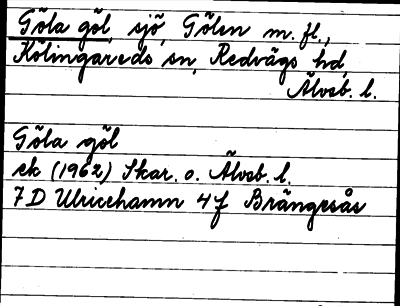 Göla göl, sjö, Gölen m. fl.,
Kölingareds sn, Redvägs hd,
Älvsb. l.
Göla göl
ek (1962) Skar. o. Älvsb. l.
7D Ulricehamn 4f Brängesås